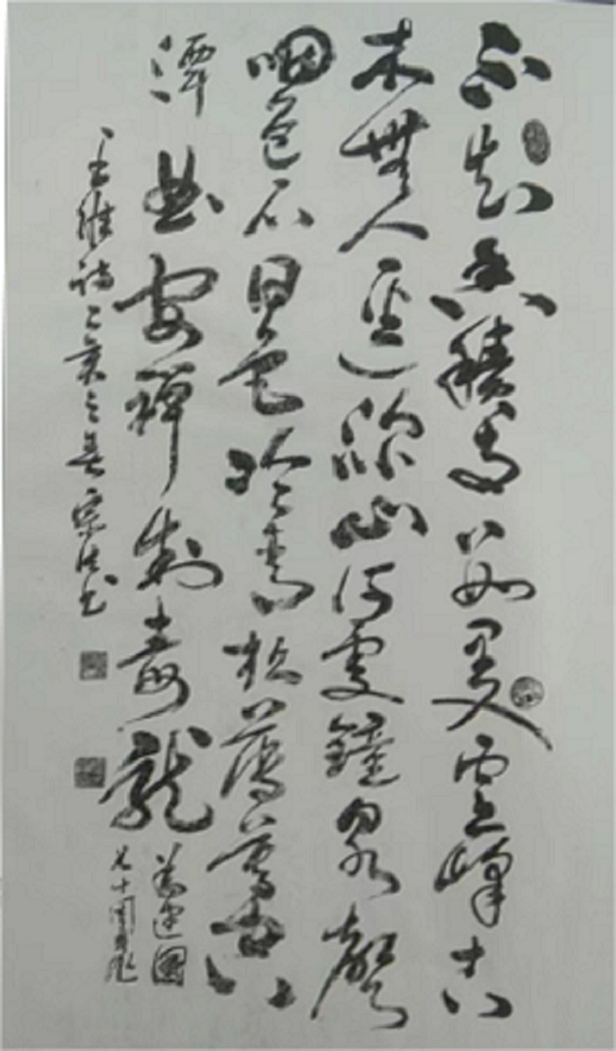 不知香積寺數里入雲峰古
木無人逕深山何處鐘泉聲
咽危石日色冷青松薄暮空
潭曲安禪制毒龍
建國
七十周年
王維詩己亥之春宗書